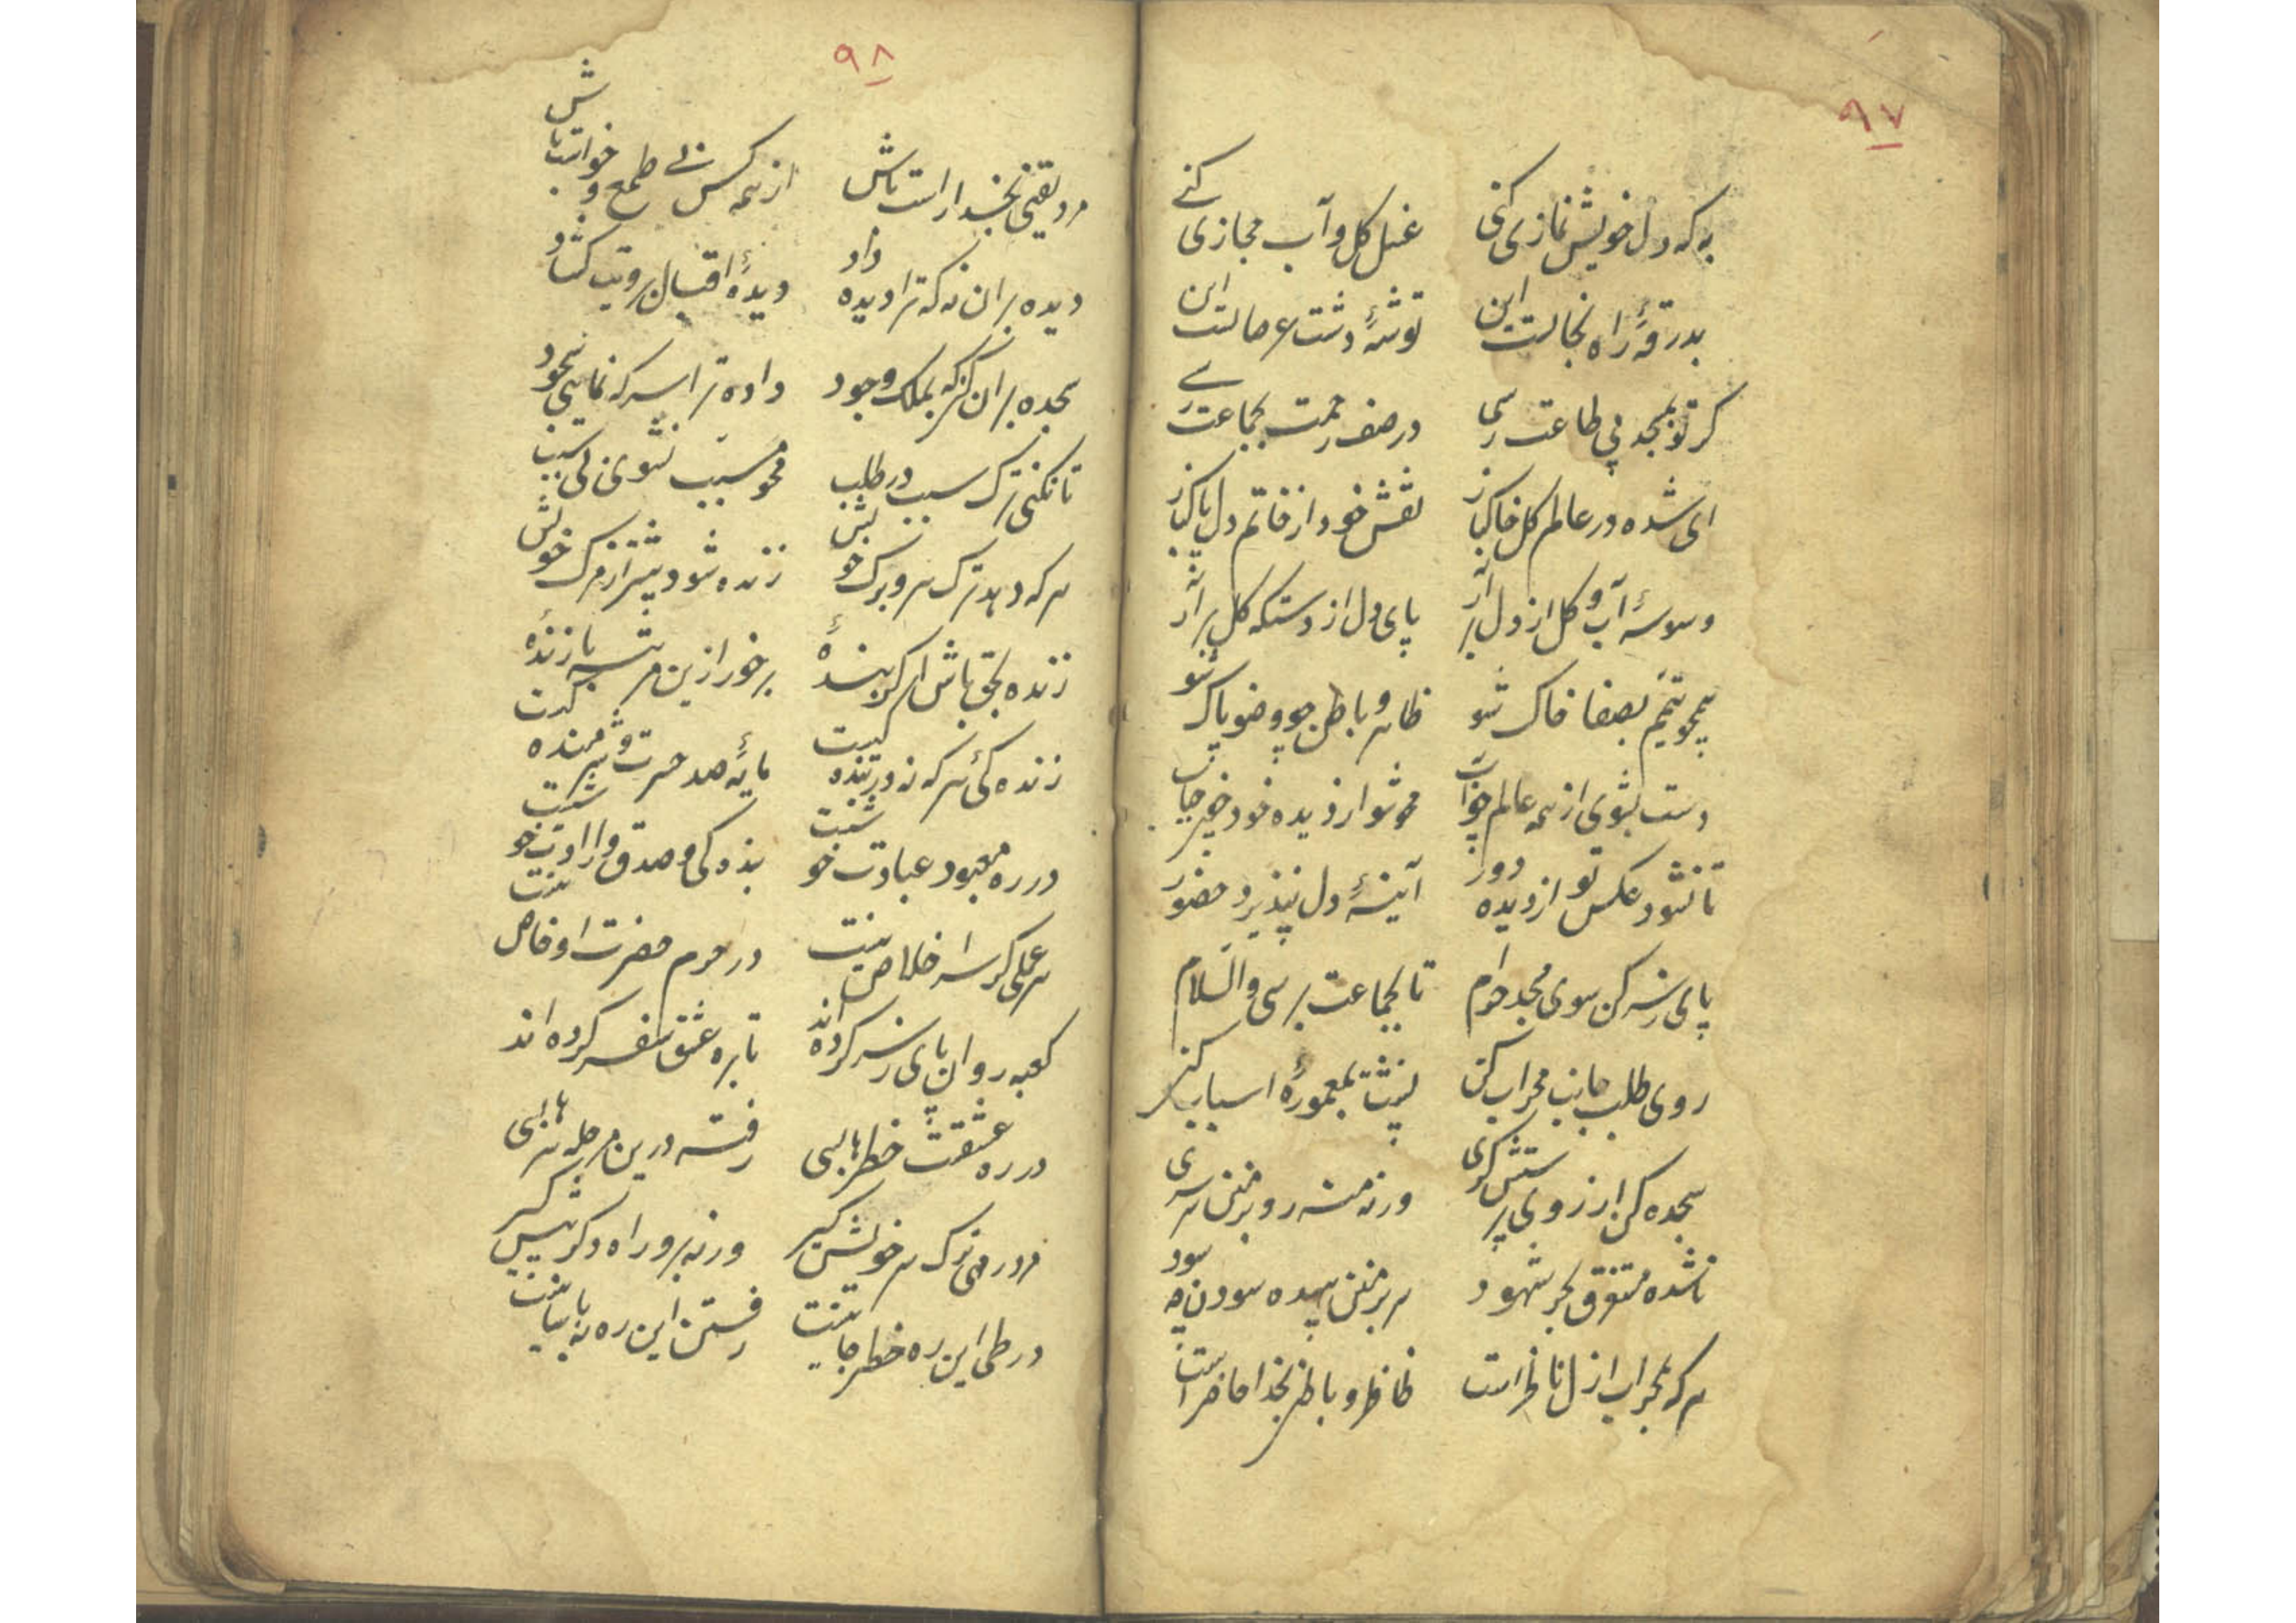 ۹۷
به که دل خویش نمازی کنی
غسل گل و آب مجازی کنے
بدرقهٔ راه نجاتست این
توشهٔ دشت عرصاتست این
گر تو بمسجد پی طاعت رسی
در صف رحمت بجماعت رسے
ای شده در عالم گل خاکباز
نقش خود از خاتم دل پاکباز
وسوسهٔ آب و گل از دل بر آر
پای دل از دستکه گل بر آر
همچو تیمم بصفا خاک شو
ظاهر و باطن چو وضو پاک شو
دست بشوی از همه عالم چو آب
محو شو از دیده خود چون حباب
تا نشود عکس تو از دیده دور
آینهٔ دل نپذیرد حضور
پای ز سر کن سوی مسجد خرام
تا بجماعت برسی والسلام
روی طلب جانب محراب کن
پشت بمعمورهٔ اسباب کن
سجده کن از روی پرستش گری
ورنه منه رو بزمین سرسری
ناشده مستغرق بحر شهود
سر بزمین بیهده سودن چه سود
هر که بمحراب ازل ناظر است
ظاهر و باطن بخدا حاضر است
۹۸
مرد یقینی بخدا راست باش
از همه کس بی طمع و خواست باش
دیده بر آن نه که ترا دیده داد
دیدهٔ اقبال برویت گشاد
سجده بر آن کن که بملک وجود
داده ترا سر که نمایی سجود
تا نکنی ترک سبب در طلب
محو مسبب نشوی بی سبب
هر که دهد ترک سر و برگ خویش
زنده شود پیشتر از مرگ خویش
زنده بحق باش اگر بندهٔ
بر خور ازین مرتبه تا زندهٔ
زنده کئ هر که نه در بندگیست
مایهٔ صد حسرت و شرمندگیست
در ره معبود عبادت خوشست
بندگی و صدق و ارادت خوشست
هر عملی کز سر اخلاص نیست
در حرم حضرت او خاص نیست
کعبه روان پای ز سر کرده اند
تا بره عشق سفر کرده اند
در ره عشقت خطرها بسی
رفته درین مرحله سرها بسی
مرد رهی ترک سر خویش گیر
ورنه برو راه دگر پیش گیر
در طی این ره خطر جانیست
رفتن این ره نه بآسانیست